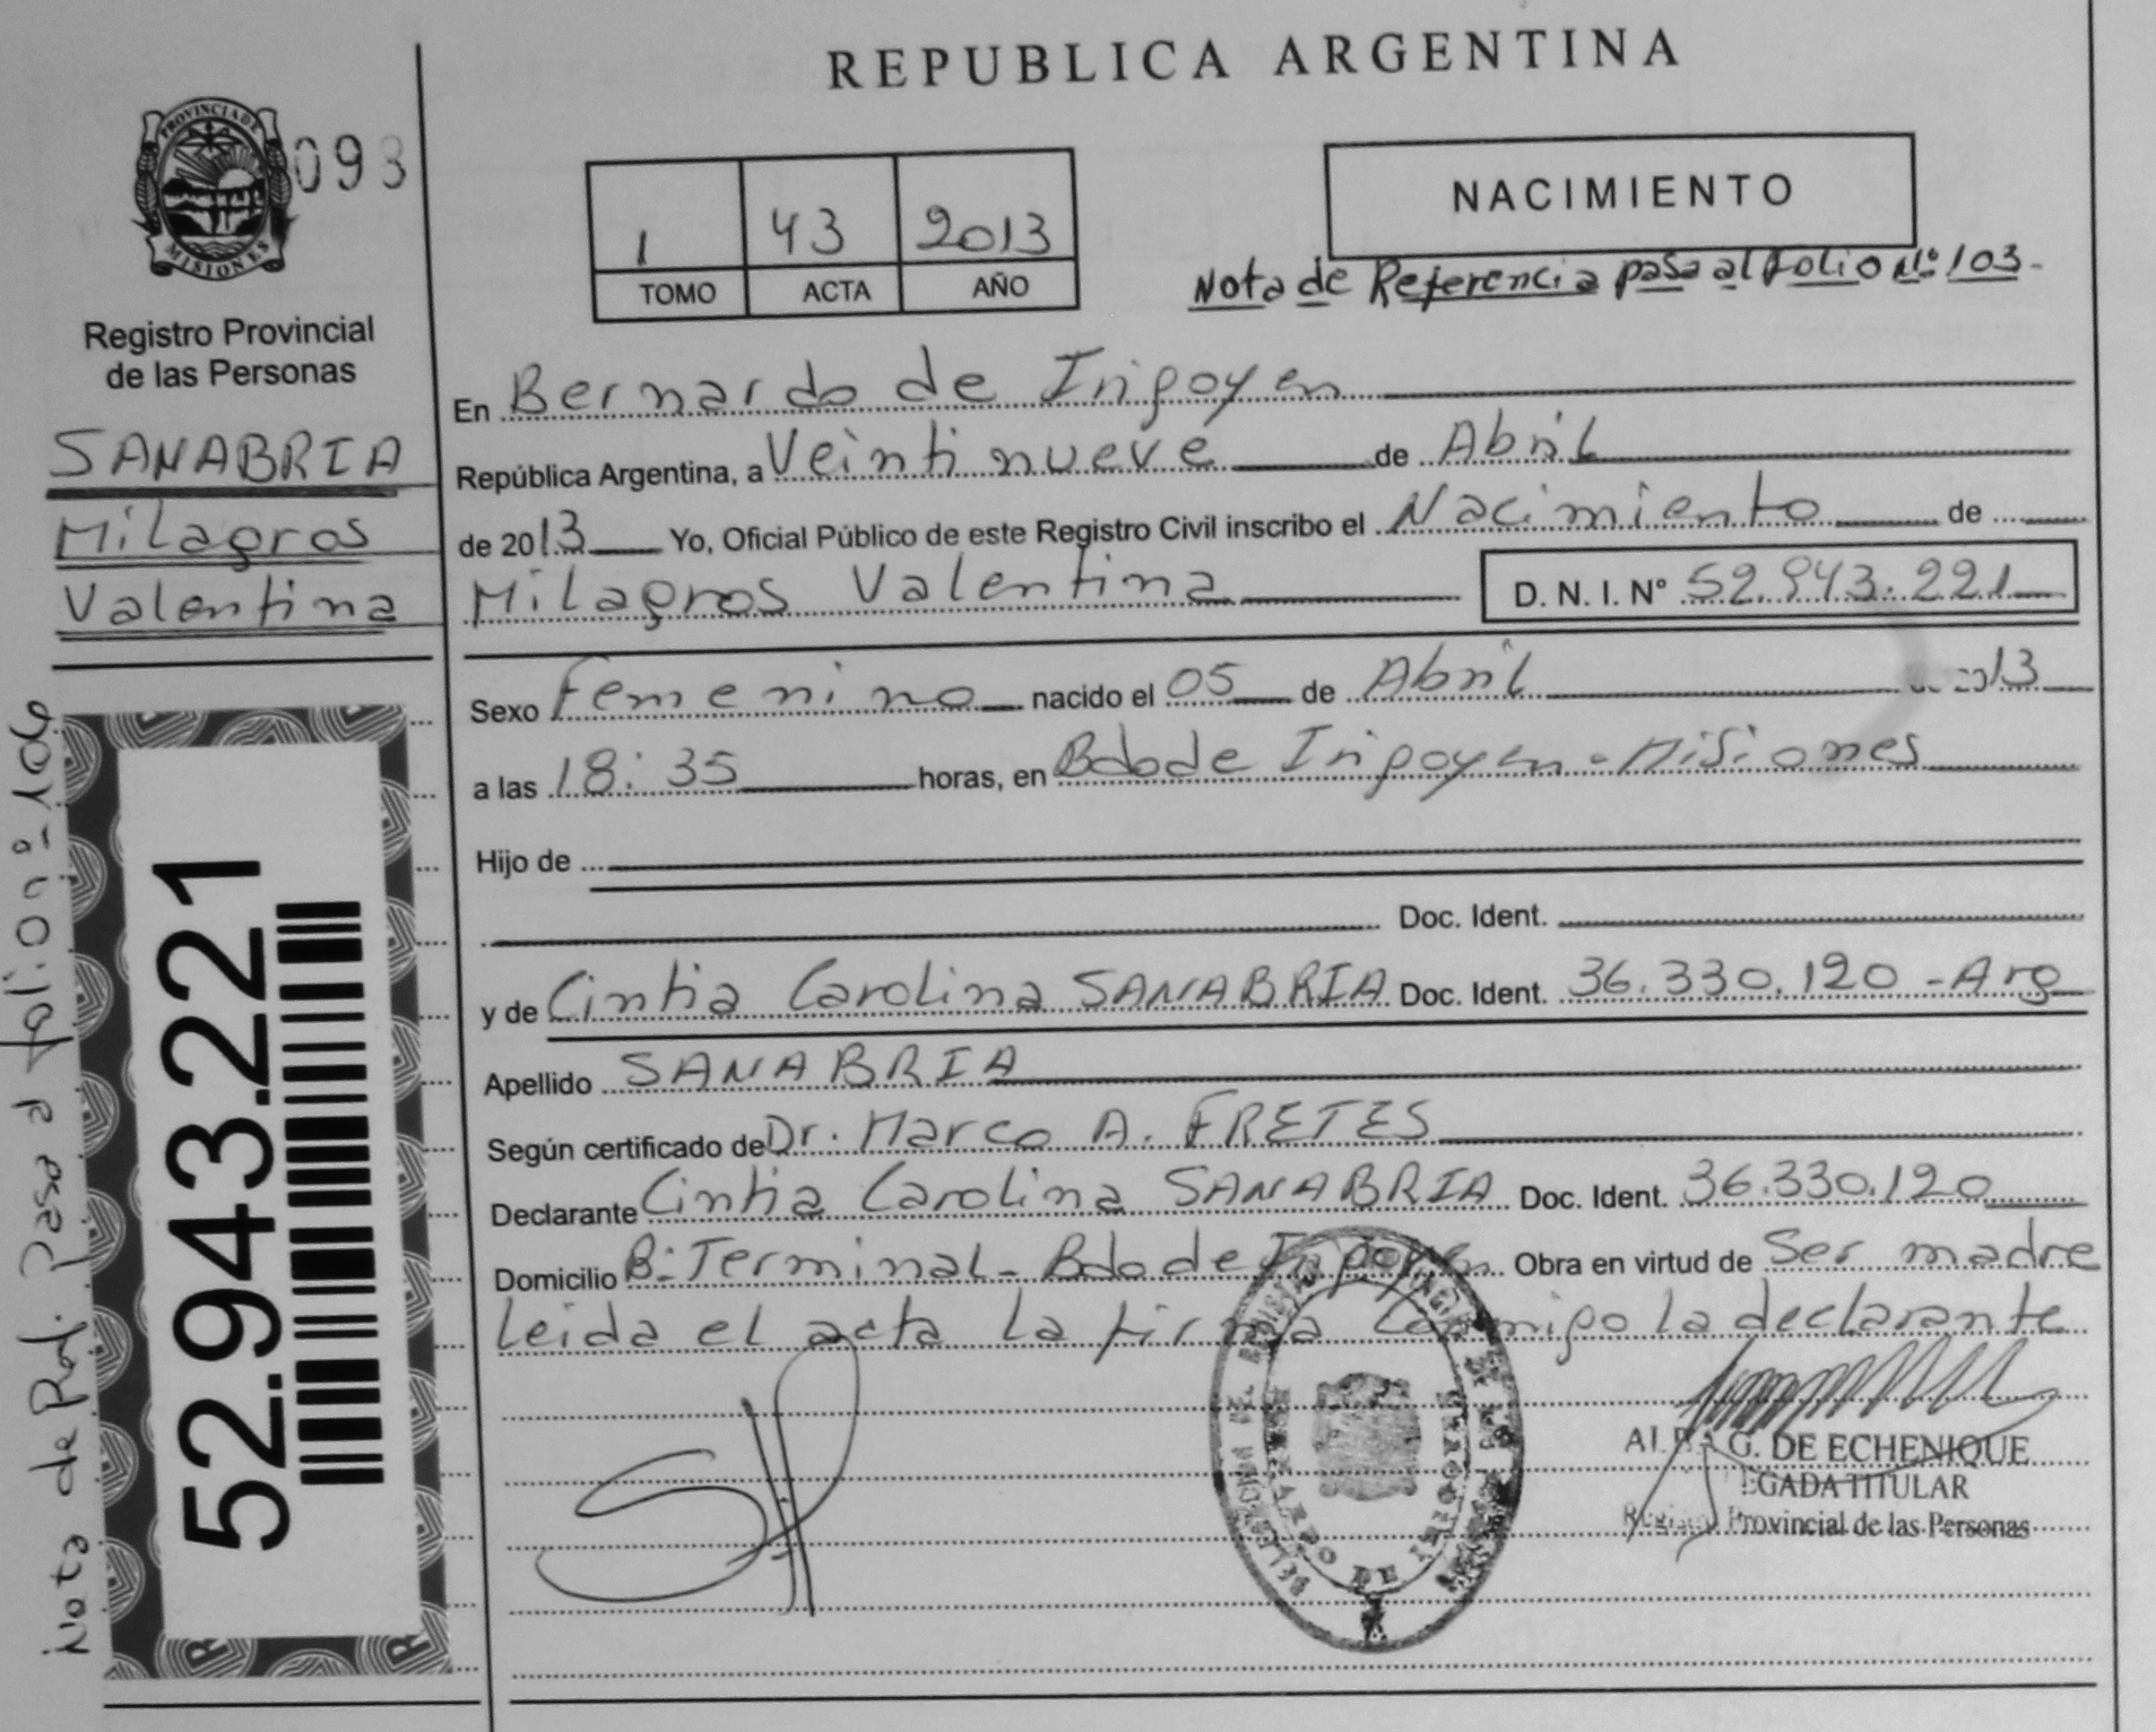 REPUBLICA ARGENTINA
PROVINCIA DE
MISIONES
093
Registro Provincial
de las Personas
SANABRIA
Milagros
Valentina
Nota de Ref. Pasa a folio nº 106
52.943.221
1 43 2013
TOMO ACTA AÑO
NACIMIENTO
Nota de Referencia pasa al Folio Nº 103-
En Bernardo de Irigoyen
República Argentina, a Veintinueve de Abril
de 2013 Yo, Oficial Público de este Registro Civil inscribo el Nacimiento de
Milagros Valentina D. N. I. Nº 52.943.221
Sexo Femenino nacido el 05 de Abril 13
a las 18:35 horas, en Bdo de Irigoyen - Misiones
Hijo de
Doc. Ident.
y de Cintia Carolina SANABRIA Doc. Ident. 36.330.120 - Arg
Apellido SANABRIA
Según certificado de Dr. Marco A. FRETES
Declarante Cintia Carolina SANABRIA Doc. Ident. 36.330.120
Domicilio Bº Terminal - Bdo de Irigoyen Obra en virtud de Ser madre
Leida el acta la firma Conmigo la declarante
G. DE ECHENIQUE
TITULAR
Provincial de las Personas
BERNARDO DE IRIGOYEN